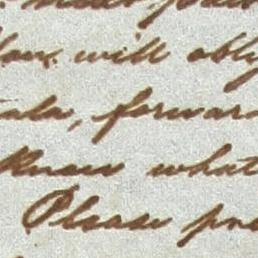 You will oblig
ala, forward
Know what
Please pre